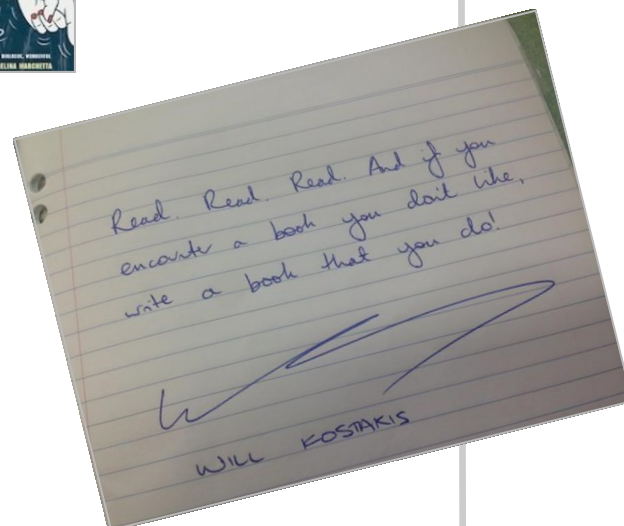 ELINA MARCHETTA
Read. Read. Read. And if you
encounter a book you don't like,
write a book that you do!
WILL KOSTAKIS